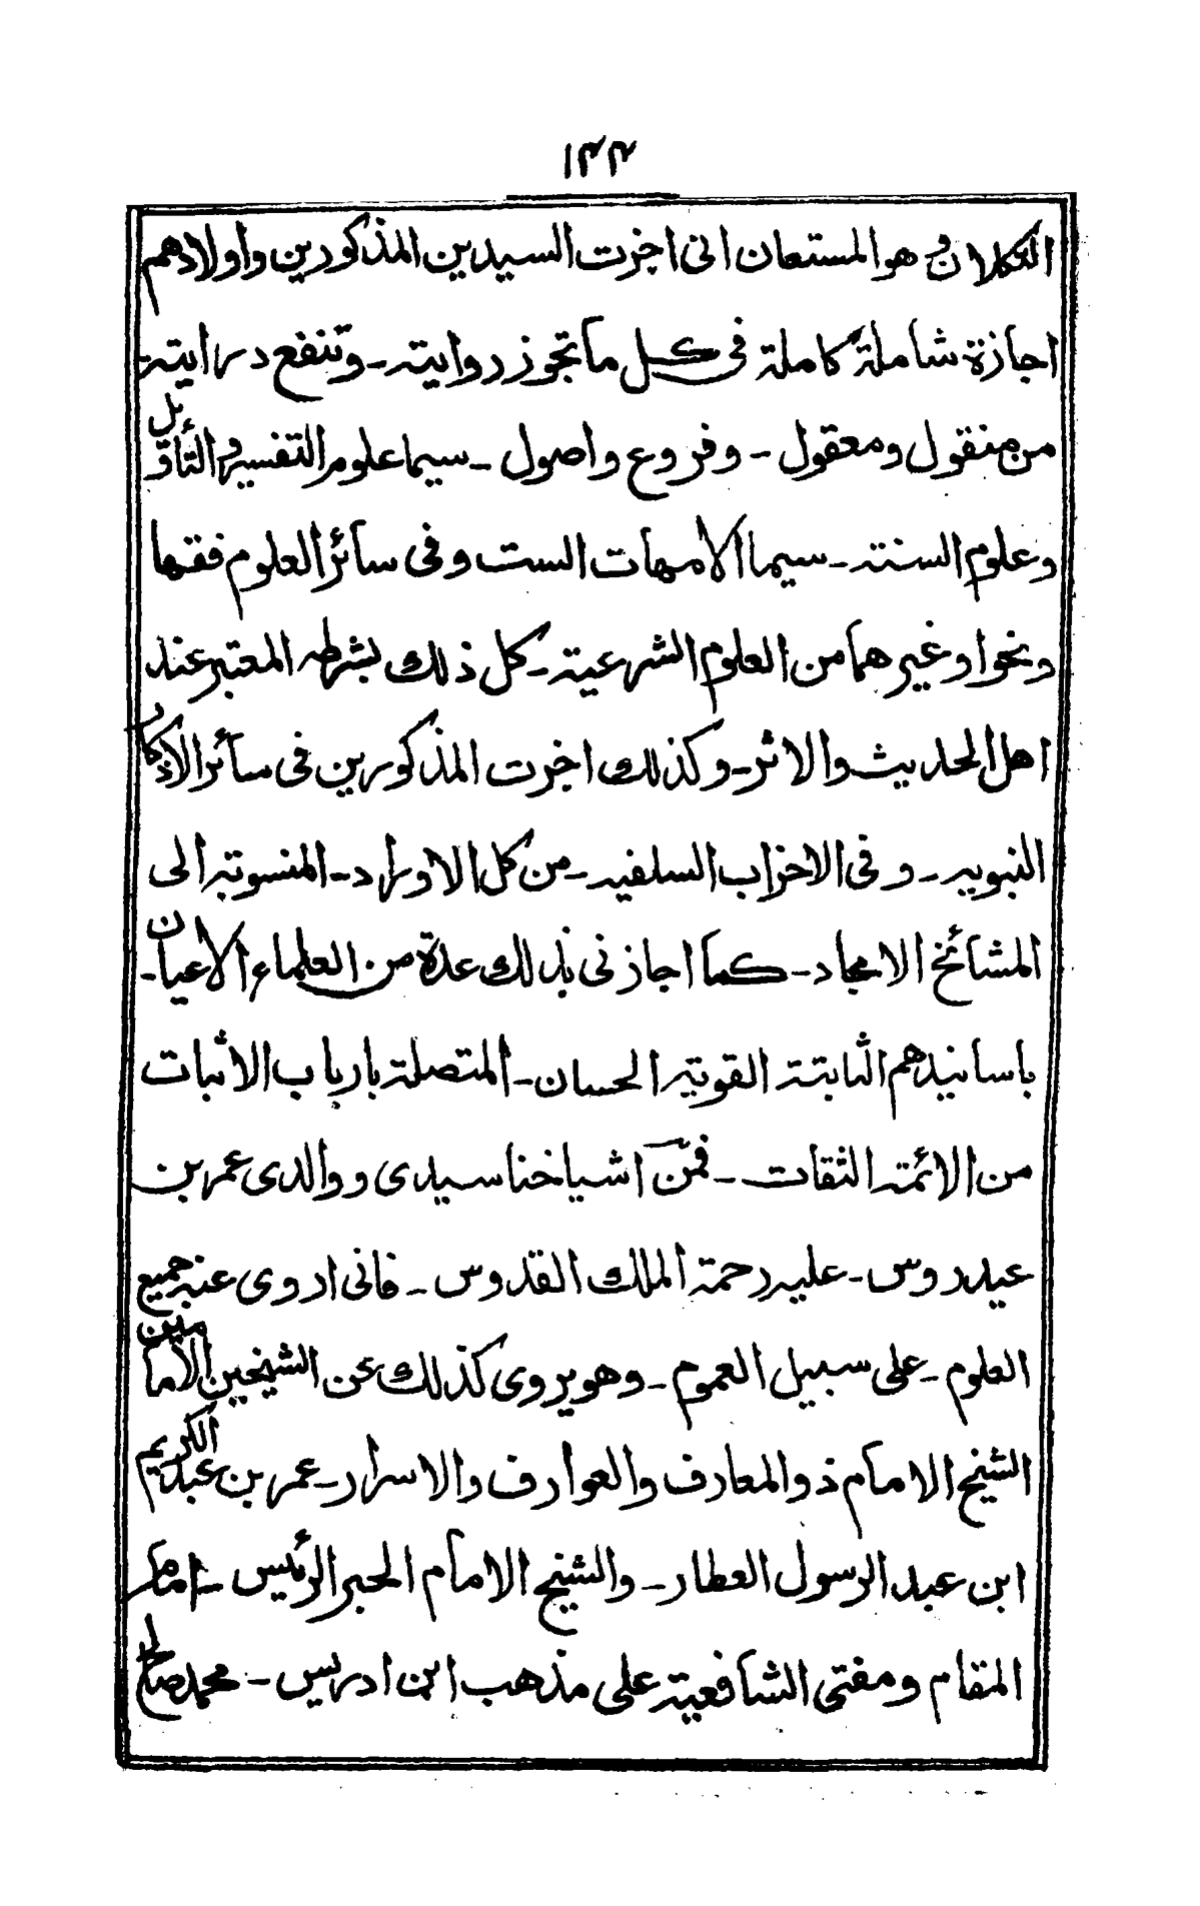 ١٣٣
التكلان و هو المستعان انى اجزت السيدين المذكورين واولادهم
اجازة شاملة كاملة فى كل ما تجوز روايته - وتنفع درايته
من منقول ومعقول - وفروع واصول - سيما علوم التفسير والتأويل
وعلوم السنة - سيما الامهات الست وفى سائر العلوم فقها
ونحوا وغيرهما من العلوم الشرعية - كل ذلك بشرطه المعتبر عند
اهل الحديث والاثر - وكذلك اجزت المذكورين فى سائر الاذكار
النبويه - وفى الاحزاب السلفيه - من كل الاوراد - المنسوبة الى
المشائخ الامجاد - كما اجازنى بذلك عدة من العلماء الاعيان -
باسانيدهم الثابتة القوية الحسان - المتصلة بارباب الاثبات
من الائمة الثقات - فمن اشياخنا سيدى ووالدى عمر بن
عيدروس - عليه رحمة الملك القدوس - فانى اروى عنه جميع
العلوم - على سبيل العموم - وهو يروى كذلك عن الشيخين الامامين
الشيخ الامام ذو المعارف والعوارف والاسرار - عمر بن عبد الكريم
ابن عبد الرسول العطار - والشيخ الامام الحبر الرئيس - امام
المقام ومفتى الشافعية على مذهب ابن ادريس - محمد صالح